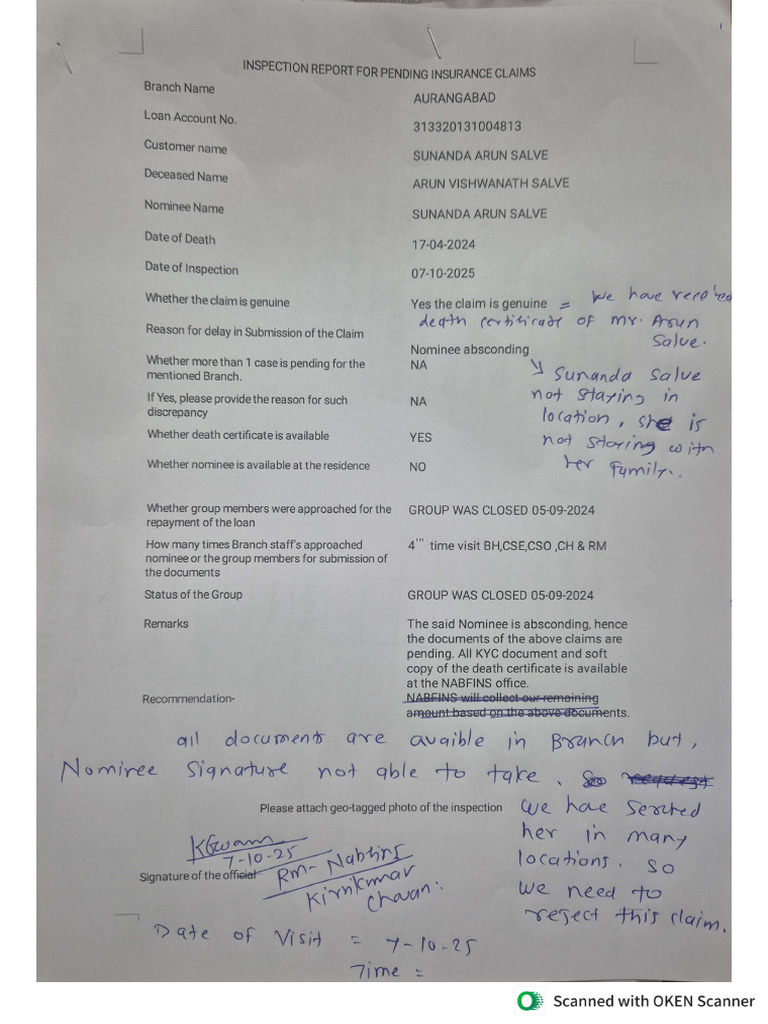 INSPECTION REPORT FOR PENDING INSURANCE CLAIMS
Branch Name AURANGABAD
Loan Account No. 313320131004813
Customer name SUNANDA ARUN SALVE
Deceased Name ARUN VISHWANATH SALVE
Nominee Name SUNANDA ARUN SALVE
Date of Death 17-04-2024
Date of Inspection 07-10-2025
Whether the claim is genuine Yes the claim is genuine = We have received
death certificate of Mr. Arun
Salve.
Reason for delay in Submission of the Claim Nominee absconding
Whether more than 1 case is pending for the NA
mentioned Branch.
Sunanda Salve
not staying in
location, she is
not staying with
her family..
If Yes, please provide the reason for such NA
discrepancy
Whether death certificate is available YES
Whether nominee is available at the residence NO
Whether group members were approached for the GROUP WAS CLOSED 05-09-2024
repayment of the loan
How many times Branch staff's approached 4TH time visit BH,CSE,CSO ,CH & RM
nominee or the group members for submission of
the documents
Status of the Group GROUP WAS CLOSED 05-09-2024
Remarks The said Nominee is absconding, hence
the documents of the above claims are
pending. All KYC document and soft
copy of the death certificate is available
at the NABFINS office.
Recommendation- NABFINS will collect our remaining
amount based on the above documents.
all documents are avaible in Branch but,
Nominee Signature not able to take. So request
Please attach geo-tagged photo of the inspection
we hae serched
her in many
locations. so
we need to
reject this claim.
7-10-25
Signature of the official RM- Nabfins
Kirnkumar
Chavan.
Date of Visit = 7-10-25
Time =
Scanned with OKEN Scanner